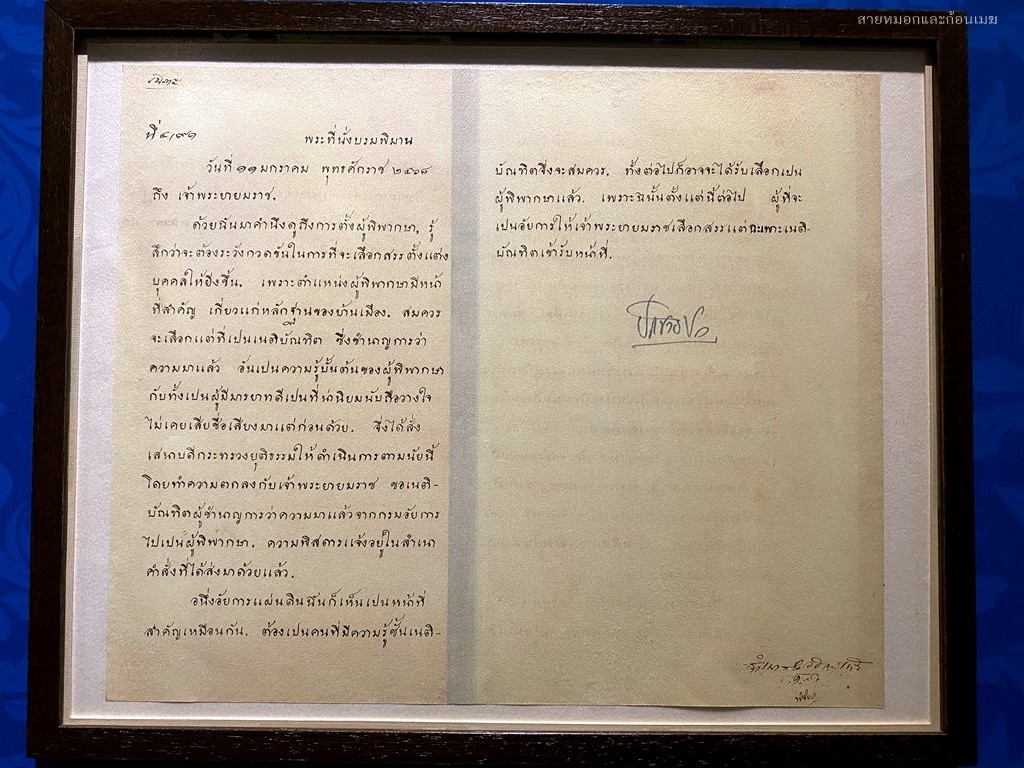 สายหมอกและก้อนเมฆ
ที่ ๔/๙๑
พระที่นั่งบรมพิมาน
วันที่ ๑๑ มกราคม พุทธศักราช ๒๔๖๘
ถึง เจ้าพระยายมราช.
ด้วยฉันมาคำนึงดูถึงการตั้งผู้พิพากษา, รู้
สึกว่าจะต้องระวังกวดขันในการที่จะเลือกสรรตั้งแต่ง
บุคคลให้ยิ่งขึ้น. เพราะตำแหน่งผู้พิพากษามีหน้า
ที่สำคัญ เกี่ยวแก่หลักฐานของบ้านเมือง. สมควร
จะเลือกแต่ที่เปนเนติบัณฑิต ซึ่งชำนาญการว่า
ความมาแล้ว อันเปนความรู้บั้นต้นของผู้พิพากษา
กับทั้งเปนผู้มีมารยาทดีเปนที่น่านิยมนับถือวางใจ
ไม่เคยเสียชื่อเสียงมาแต่ก่อนด้วย. จึ่งได้สั่ง
เสนาบดีกระทรวงยุติธรรมให้ดำเนินการตามนัยนี้
โดยทำความตกลงกับเจ้าพระยายมราช ขอเนติ-
บัณฑิตผู้ชำนาญการว่าความมาแล้วจากกรมอัยการ
ไปเปนผู้พิพากษา. ความพิสดารแจ้งอยู่ในสำเนา
คำสั่งที่ได้ส่งมาด้วยแล้ว.
อนึ่งอัยการแผ่นดินนั้นก็เห็นเปนหน้าที่
สำคัญเหมือนกัน. ต้องเปนคนที่มีความรู้ชั้นเนติ-
บัณฑิตจึ่งจะสมควร. ทั้งต่อไปก็อาจจะได้รับเลือกเปน
ผู้พิพากษาแล้ว. เพราะฉนั้นตั้งแต่นี้ต่อไป ผู้ที่จะ
เปนอัยการให้เจ้าพระยายมราชเลือกสรรแต่ฉะเพาะเนติ-
บัณฑิตเข้ารับหน้าที่.